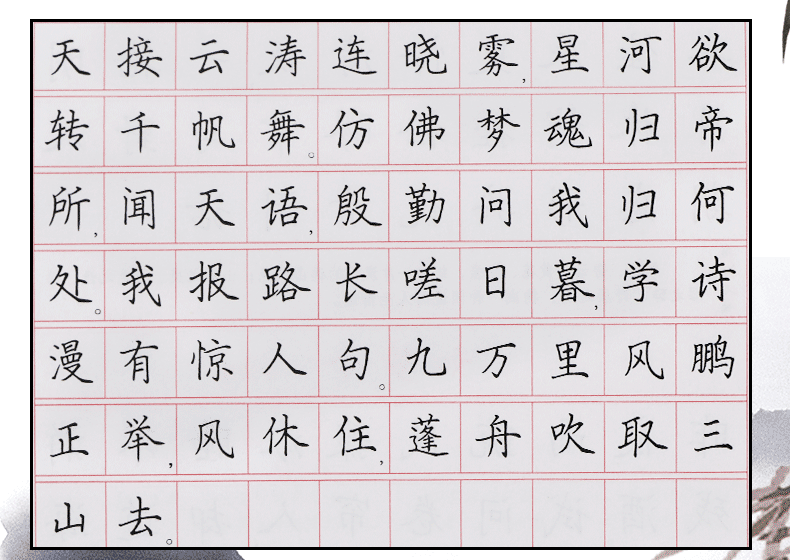 天接云涛连晓雾,星河欲
转千帆舞。仿佛梦魂归帝
所,闻天语,殷勤问我归何
处。我报路长嗟日暮,学诗
漫有惊人句。九万里风鹏
正举,风休住,蓬舟吹取三
山去。